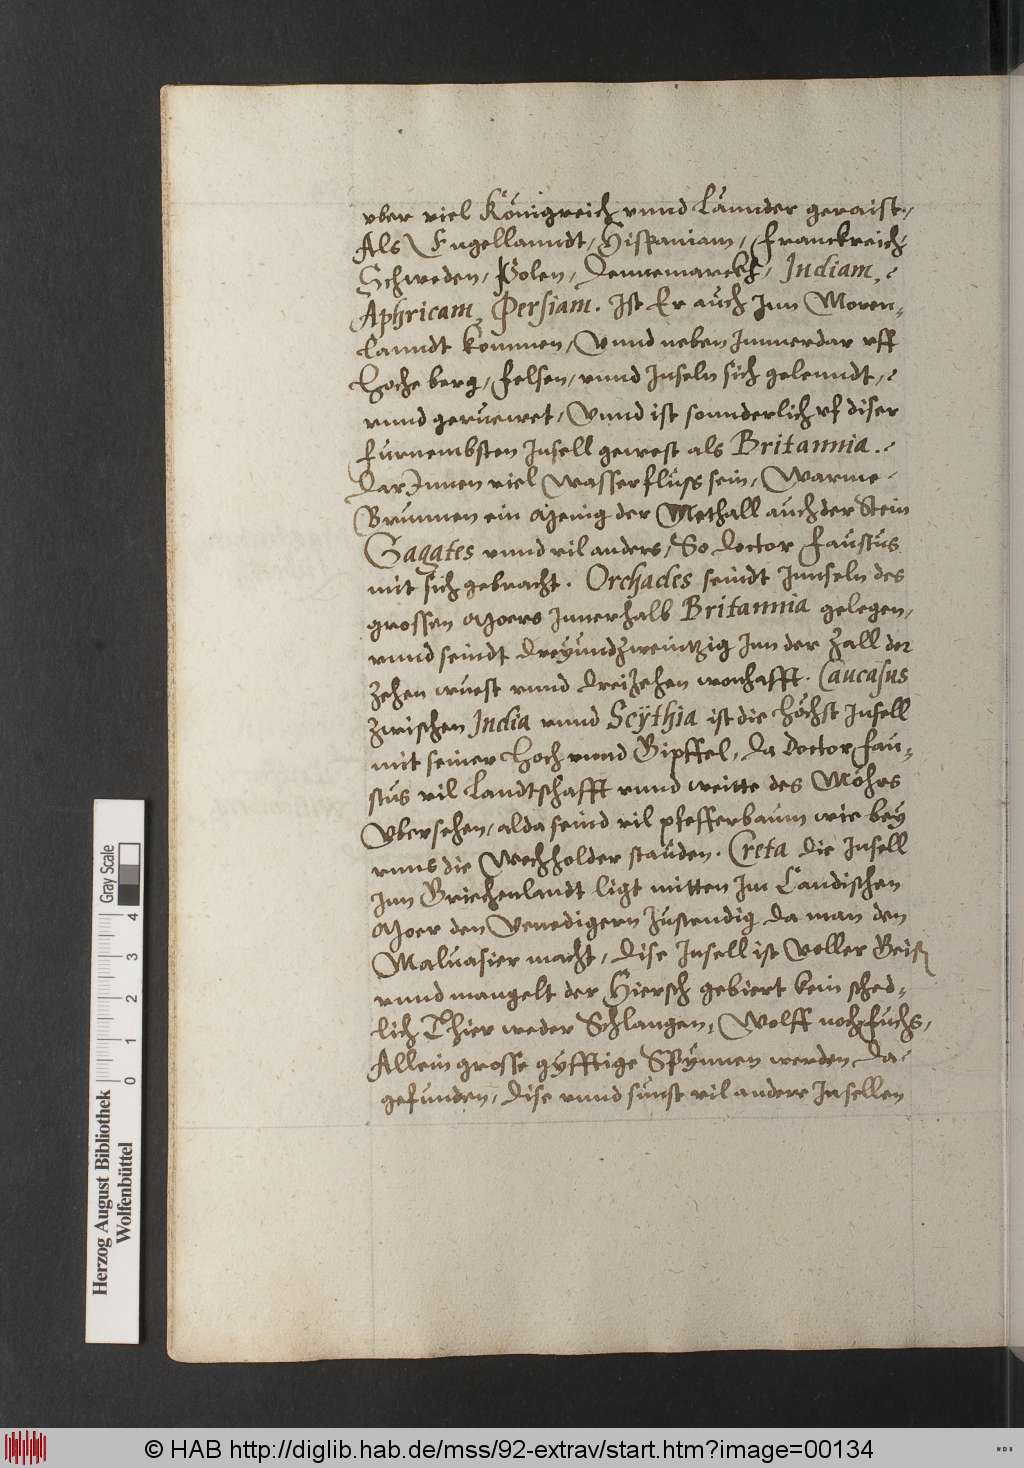 vber viel Königreich vnnd Lännder geraist,
Als Engellanndt, Hispaniam, Franckreich,
Schweden, Polen, Dennemarckh, Indiam,
Aphricam, Persiam. Ist Er auch Inn Moren-
Lanndt kommen, Vnnd neben Immerdar vff
Hoche berg, Felsen, vnnd Inseln sich gelenndt,
vnnd geruewet, Vnnd ist sonnderlich vf diser
Furnembsten Insell gewest als Britannia.
DarInnen viel wasserflüss sein, Warme
Brunnen ein Menig der Methall auch der Stein
Gagates vnnd vil anders, So Doctor Faustus
mit sich gebracht. Orchades seindt Innseln des
grossen Moers Innerhalb Britannia gelegen,
vnnd seindt Dreyundzweintzig Inn der Zall der
Zehen wuest vnnd Dreizehen wonhafft. Caucasus
Zwischen India vnnd Scÿthia ist die höchst Insell
mit seiner Hoch vnnd Gipffel, Da Doctor Fau-
stus vil Landtschafft vnnd weitte des Möhrs
Vbersehen, alda seind vil pfefferbaum wie bey
vnns die Wechholder stauden. Creta die Insell
Inn Griechenlandt ligt mitten Im Candischen
Moer den Venedigern Zustendig Da man den
Maluasier macht, Dise Insell ist Voller Geiß
vnnd mangelt der Hiersch gebiert kein sched-
lich Thier weder Schlangen, Wolff noch Fuchs,
Allein grosse gyfftige Spynnen werden Da
gefunden, Dise vnnd sunst vil andere Insellen
Herzog August Bibliothek
Wolfenbüttel
Gray Scale
0 1 2 3 4
© HAB http://diglib.hab.de/mss/92-extrav/start.htm?image=00134
WDB